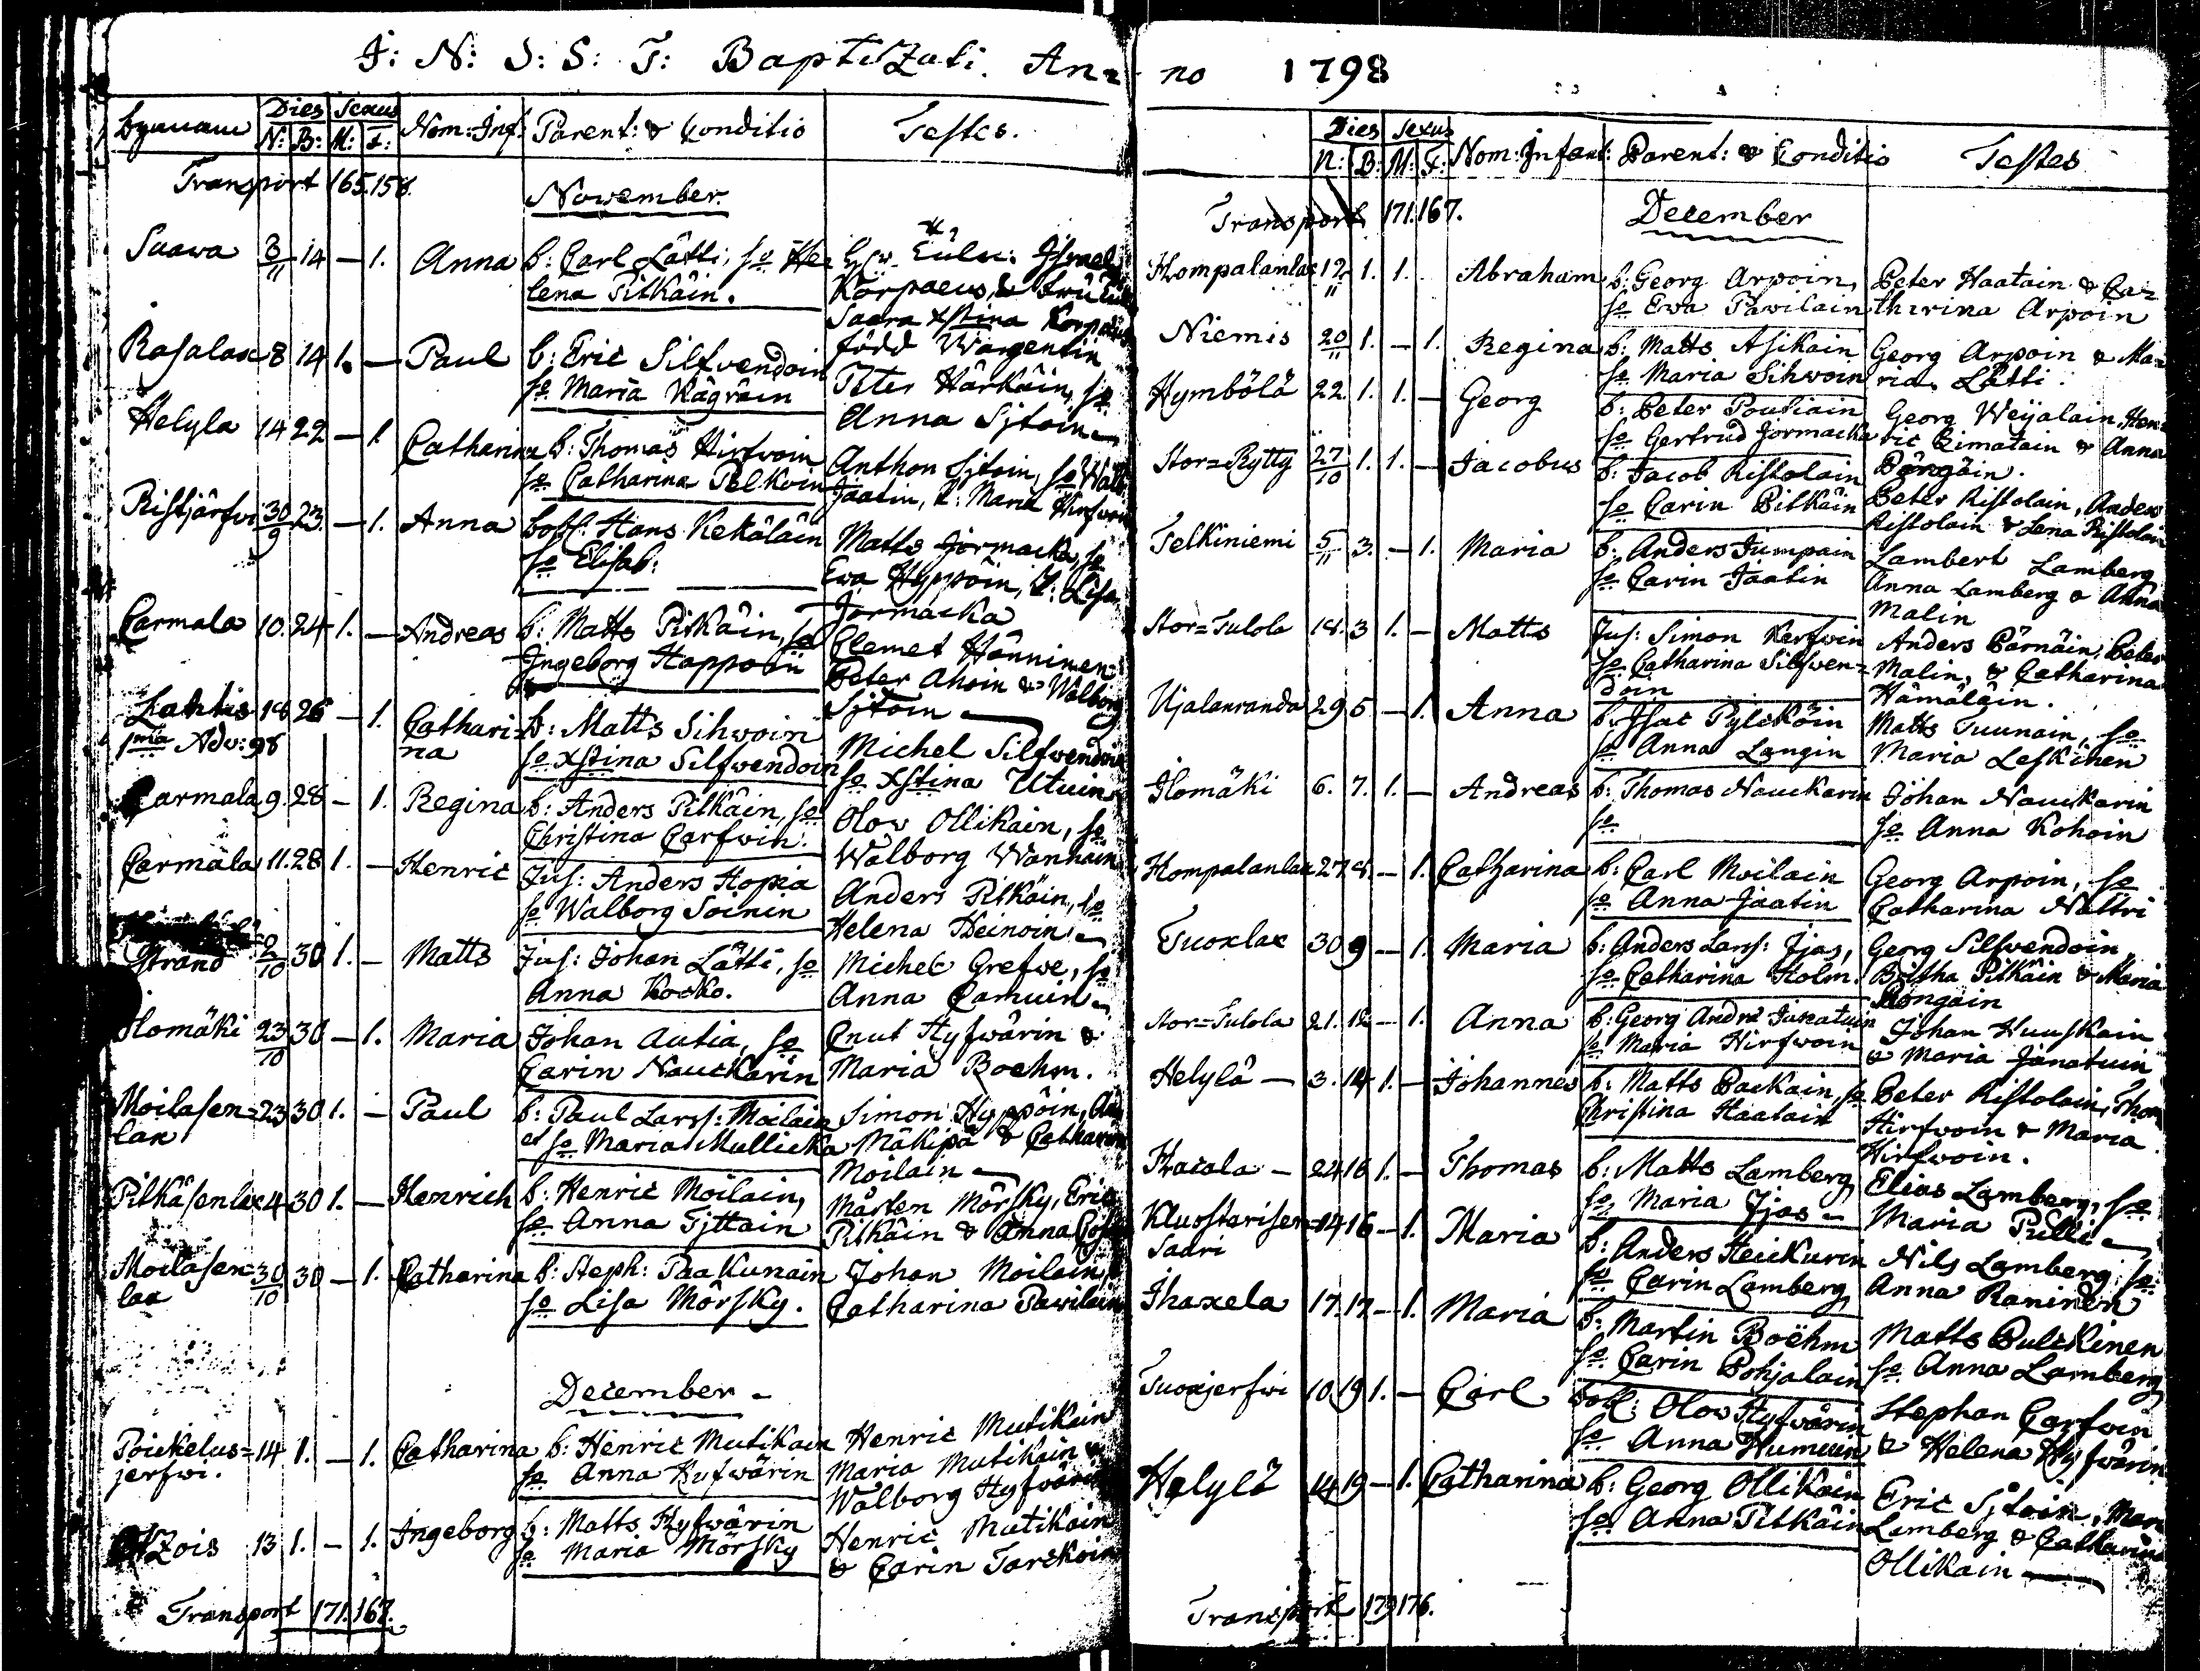 J: N: S: S: T: Baptizati. An=
Bynnam Dies Sexus
N: B: M: F: Nom: Inf: Parent: & Conditio Testes.
Transport 165. 158.
November.
Saawa 8/11 14 — 1. Anna b: Carl Lätti, so He=
lena Pitkäin.
Israel
Korpaeus, & fru
Saara Xstina Korpaeus
född Wargentin
Rasalax 8 14 1. — Paul b: Eric Silfvendoin
so Maria Kägräin
Peter Härkäin, so
Anna Sjtoin
Helyla 14 22 — 1 Catharina b: Thomas Hirfwoin
so Catharina Pelkoin
Anthon Sjtoin, so Walb:
Jaatin, P: Maria Hirfwoin
Ristjärfwi 30/9 23 — 1. Anna Hans Kekäläin
so Elisab:
Matts Jormacka, so
Ewa Hyppöin, P: Lisa
Jormacka
Carmala 10. 24 1. — Andreas b: Matts Pitkäin, so
Ingeborg Happoin
Clemet Hänninen
Peter Ahoin & Walborg
Sjtoin
Lahtis 18 26 — 1. Cathari=
na
1ma Adv: 98
b: Matts Sihwoin
so Xstina Silfwendoin
Michel Silfwendoin
so Xstina Utuin
Carmala 9. 28 — 1. Regina b: Anders Pitkäin, so
Christina Carfwin.
Olow Ollikain, so
Walborg Wanhain
Carmala 11. 28 1. — Henric Jus: Anders Hopia
so Walborg Soinin
Anders Pitkäin, so
Helena Heinoin
Strand 2/10 30 1. — Matts Jus: Johan Lätti, so
Anna Kocko.
Michel Grefwe, so
Anna Camuin
Ilomäki 23/10 30 — 1. Maria Johan Autia, so
Carin Nauckarin
Cnut Hyfwärin &
Maria Boehm.
Moilasen=
lax 23 30 1. — Paul b: Paul Larss: Moilain
et so Maria Mullicka
Simon Hyppöin,
Mäkipä & Catharin
Moilain
Pitkäsenlax 4 30 1. — Henrich b: Henric Moilain,
so Anna Tjttain
Mårten Mörsky, Eric
Pitkäin & Anna
Moilasen=
lax 30/10 30 — 1. Catharina b: Steph: Paakunain
so Lisa Mörsky.
Johan Moilain,
Catharina Pawilain
December
Poickelus=
jerfwi. 14 1. — 1. Catharina b: Henric Mutikain
so Anna Hyfwärin
Henric Mutikain
Maria Mutikain &
Walborg Hyfwärin
13 1. — 1. Ingeborg b: Matts Hyfwärin
so Maria Mörsky
Henric Mutikain
& Carin Torckoin
Transport 171. 167.
no 1798
Dies Sexus
N: B: M: F: Nom: Infant: Parent: & Conditio Testes
Transport 171. 167.
December
Hompalanlax 12/11 1. 1. Abraham b: Georg Arpoin,
so Ewa Pawilain
Peter Haatain & Ca=
tharina Arpoin
Niemis 20/11 1. — 1. Regina b: Matts Asikain
so Maria Sihwoin
Georg Arpoin & Ma=
ria Lätti.
Hymbölä 22. 1. 1. — Georg b: Peter Poutiain
so Gertrud Jormacka
Georg Weijalain, Hen=
ric Rimatain & Anna
Pöngäin.
Stor=Rytty 27/10 1. 1. — Jacobus b: Jacob Ristolain
so Carin Pitkäin
Peter Ristolain, Anders
Ristolain & Lena Ristolain
Telkiniemi 5/11 3. — 1. Maria b: Anders Jumpain
so Carin Jaatin
Lambert Lamberg
Anna Lamberg & Anna
Malin
Stor=Tulola 18. 3 1. — Matts Jus: Simon Kerfwin
so Catharina Silfwen=
doin
Anders Bärnäin, Peter
Malin, & Catharina
Hämäläin.
Ujalanranda 29 5 — 1. Anna b: Isac Pylcköin
so Anna Langin
Matts Tuunain, so
Maria Leskinen
Ilomäki 6. 7. 1. — Andreas b: Thomas Nauckarin
so
Johan Nauckarin
so Anna Kohoin
Hompalanlax 27 8 — 1. Catharina b: Carl Moilain
so Anna Jaatin
Georg Arpoin, so
Catharina Nattri
Tuoxlax 30 9 — 1. Maria b: Anders Larss: Ijas,
so Catharina Holm.
Georg Silfwendoin
Britha Pitkäin & Maria
Pöngäin
Stor=Tulola 21. 12 — 1. Anna b: Georg Andrs Junatuin
so Maria Hirfwoin
Johan Huuskain
& Maria Janatuin
Helylä — 3. 14 1. — Johannes b: Matts Packain, so
Christina Haatain
Peter Ristolain, Thom
Hirfwoin & Maria
Hirfwoin.
Hacola — 24 16 1. — Thomas b: Matts Lamberg
so Maria Ijas
Elias Lamberg, so
Maria Pulli
Kluostarisen=
Saari 14 16 — 1. Maria b: Anders Heickurin
so Carin Lamberg
Nils Lamberg, so:
Anna Raninen
Ihaxela 17. 17 — 1. Maria b: Martin Boëhm
so Carin Pohjalain
Matts Pulckinen
so Anna Lamberg
Tuoxjerfwi 10 19 1. — Carl Olow Hyfwärin
so Anna Humuin
Stephan Carfwin
& Helena Hyfwärin
Helylä 14 19 — 1. Catharina b: Georg Ollikain
so Anna Pitkäin
Eric Sjtoin, Mari
Lamberg & Catharina
Ollikain
Transport 179 176.